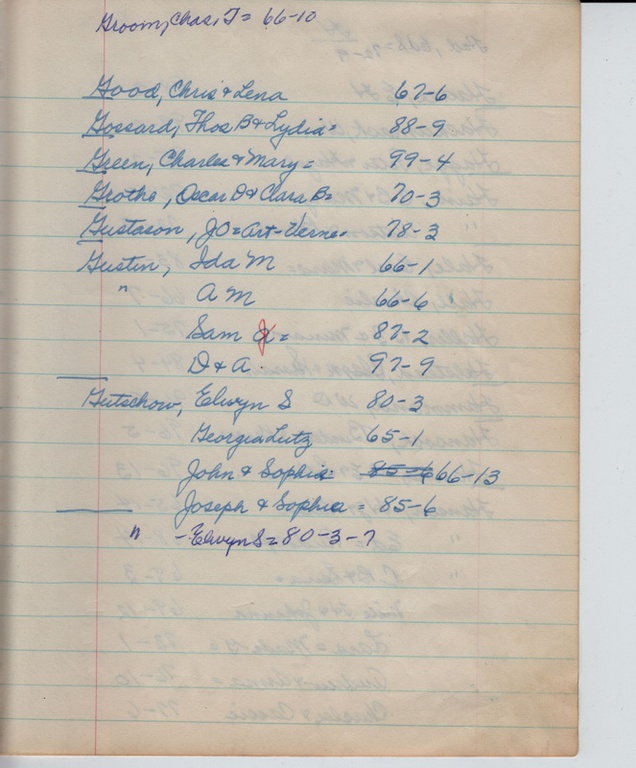 Groom, Chas. T = 66-10
Good, Chris & Lena 67-6
Gossard, Thos. B & Lydia = 88-9
Green, Charles & Mary = 99-4
Grothe, Oscar D & Clara B = 70-3
Gustason, JO = Art-Verne. 78-3
Gustin, Ida M 66-1
" A M 66-6
Sam = 87-2
D & A. 97-9
Gutschow, Elwyn S 80-3
Georgia Lutz 65-1
John & Sophia = 85-6 66-13
Joseph & Sophia = 85-6
" - Elwyn S = 80-3-7